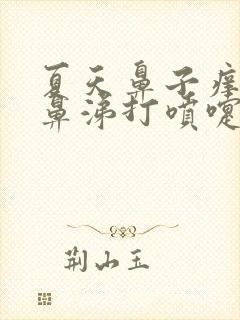 夏天鼻子痒
鼻涕打喷嚏
荆山玉